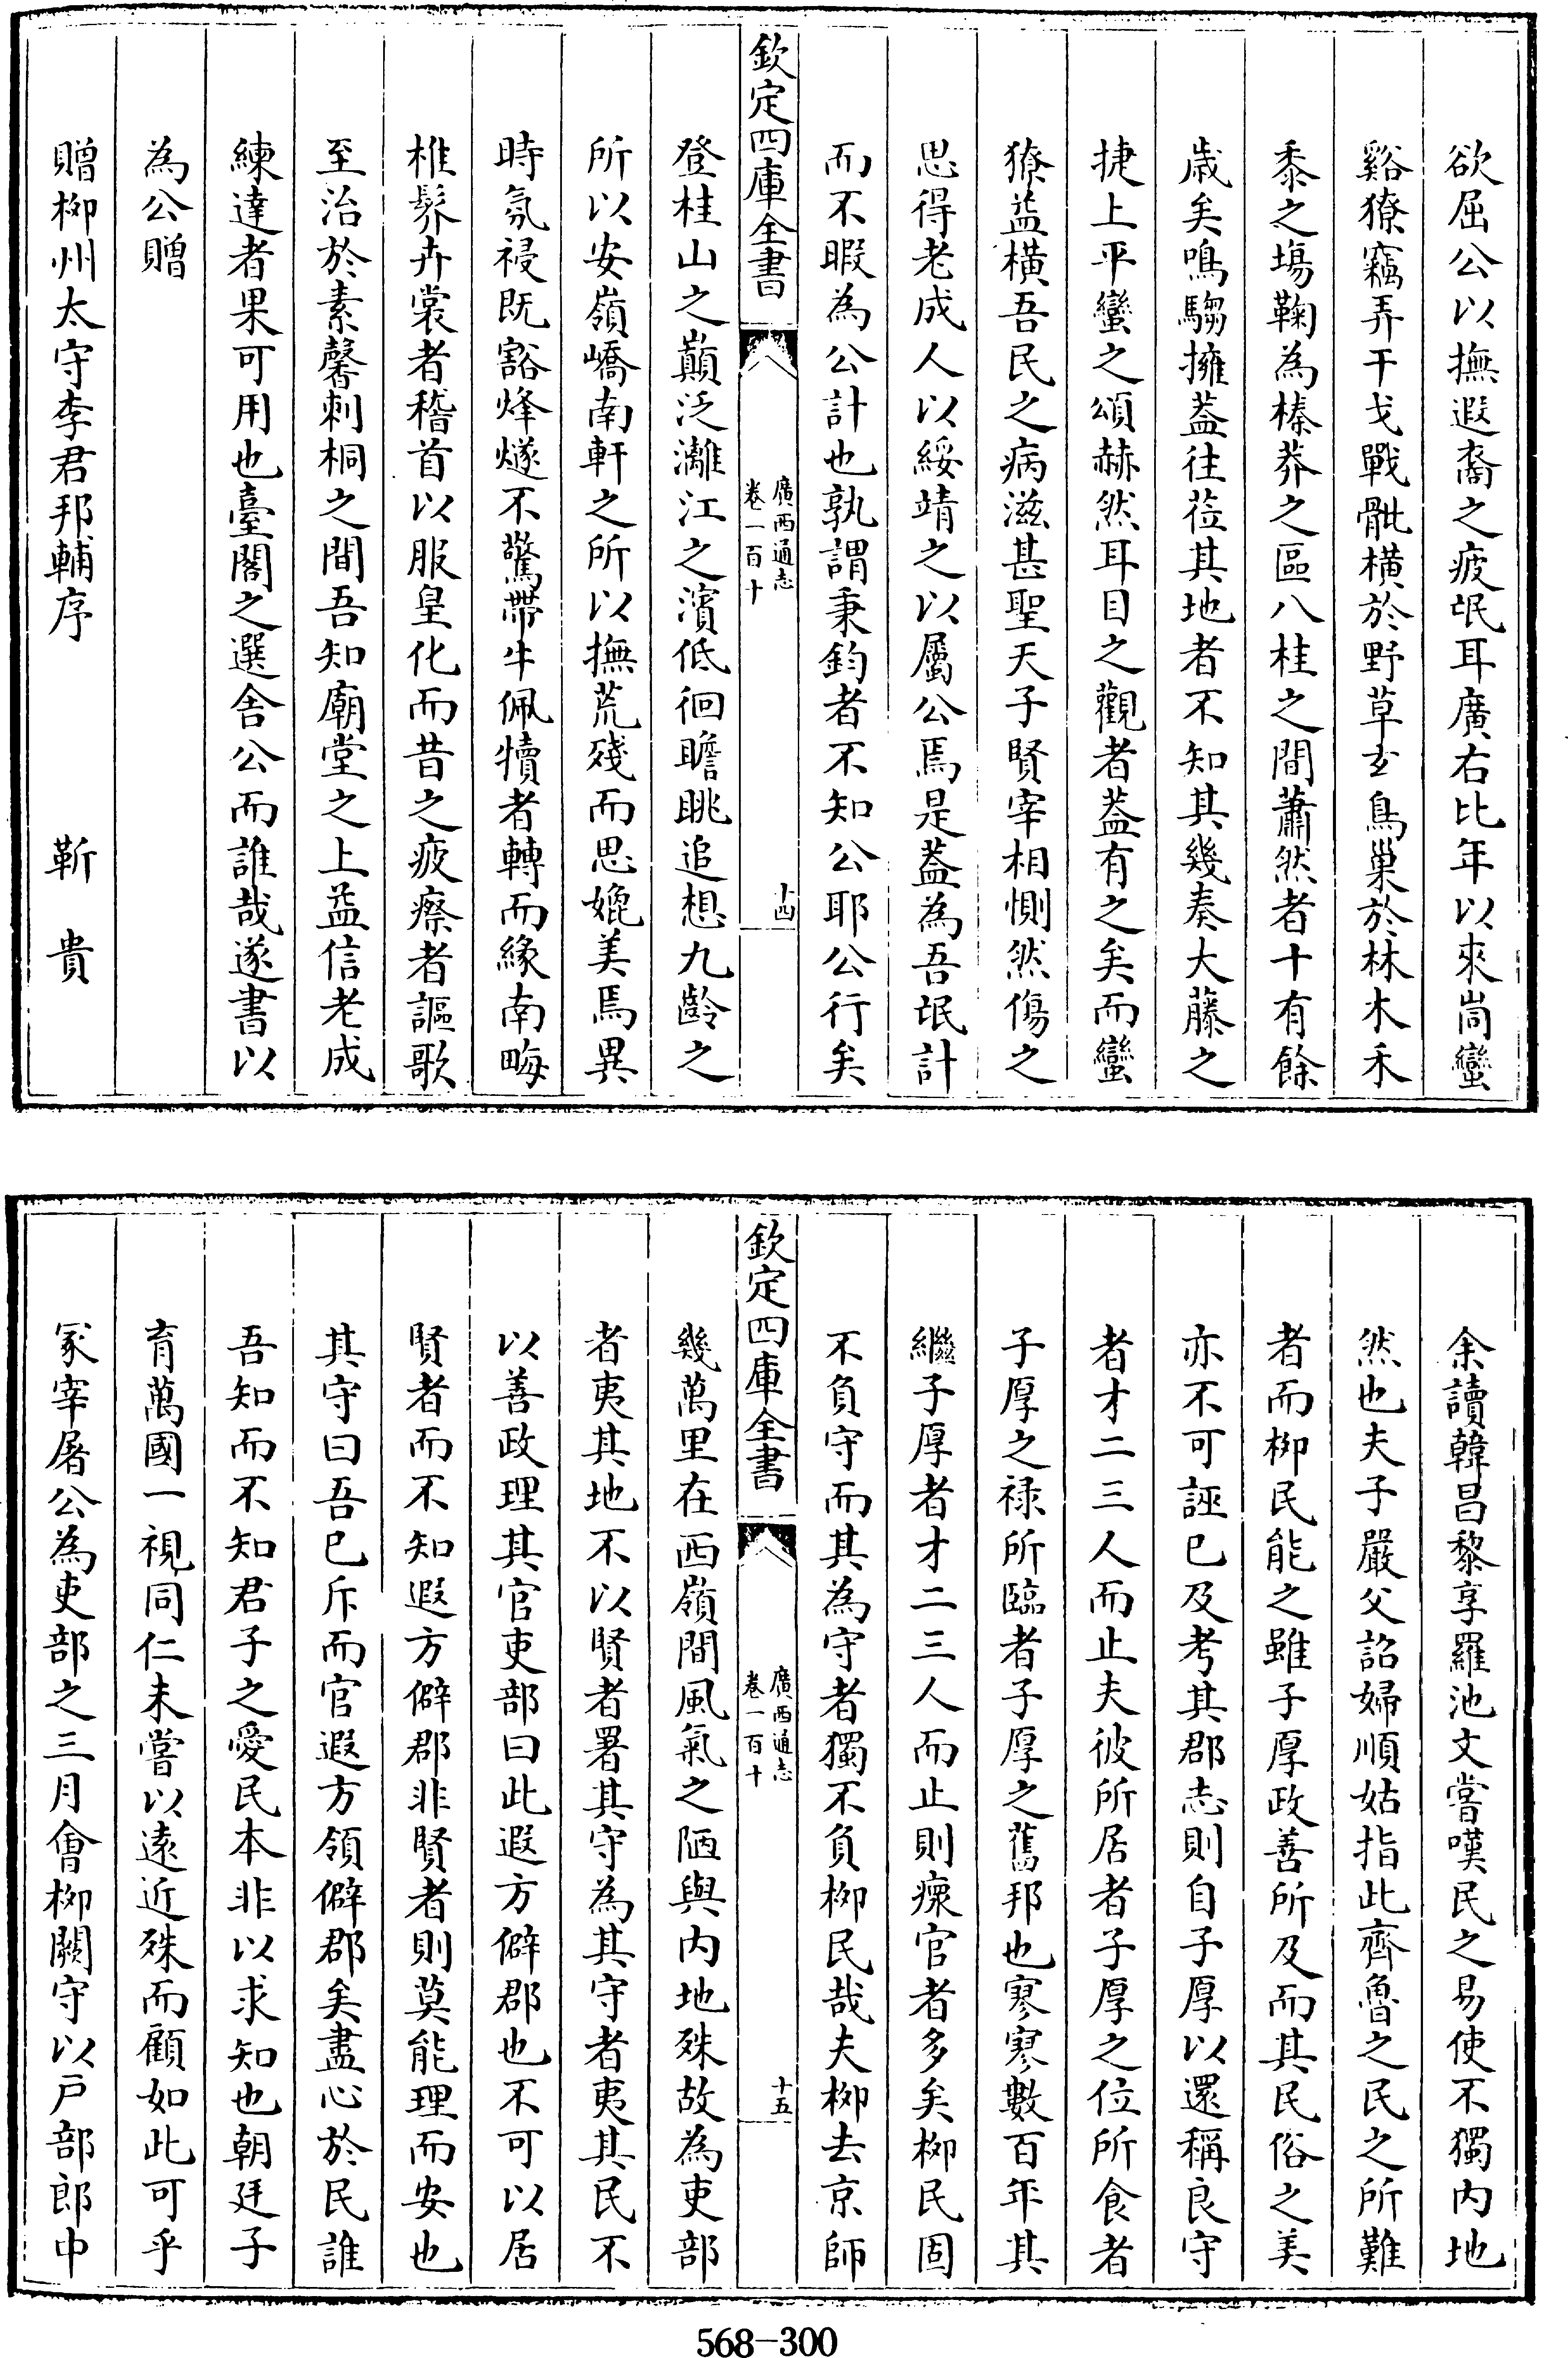 欲屈公以撫遐裔之疲氓耳廣右比年以來峝蠻
谿獠竊弄干戈戰骴橫於野草玄鳥巢於林木禾
黍之塲鞠為榛莽之區八桂之間蕭然者十有餘
歲矣鳴騶擁葢往莅其地者不知其幾奏大藤之
捷上平蠻之頌赫然耳目之觀者葢有之矣而蠻
獠益橫吾民之病滋甚聖天子賢宰相惻然傷之
思得老成人以綏靖之以屬公焉是葢為吾氓計
而不暇為公計也孰謂秉鈞者不知公耶公行矣
欽定四庫全書
廣西通志
卷一百十
十四
登桂山之巔泛灕江之濱低徊瞻眺追想九齡之
所以安嶺嶠南軒之所以撫荒殘而思媲美焉異
時氛祲既豁烽燧不驚帶牛佩犢者轉而緣南畮
椎髻卉裳者稽首以服皇化而昔之疲瘵者謳歌
至治於素馨刺桐之間吾知廟堂之上益信老成
練達者果可用也臺閣之選舍公而誰哉遂書以
為公贈
贈柳州太守李君邦輔序 靳貴
余讀韓昌黎享羅池文嘗嘆民之易使不獨内地
然也夫子嚴父詔婦順姑指此齊魯之民之所難
者而柳民能之雖子厚政善所及而其民俗之美
亦不可誣已及考其郡志則自子厚以還稱良守
者才二三人而止夫彼所居者子厚之位所食者
子厚之祿所臨者子厚之舊邦也寥寥數百年其
繼子厚者才二三人而止則瘝官者多矣柳民固
不負守而其為守者獨不負柳民哉夫柳去京師
欽定四庫全書
廣西通志
卷一百十
十五
幾萬里在西嶺間風氣之陋與内地殊故為吏部
者夷其地不以賢者署其守為其守者夷其民不
以善政理其官吏部曰此遐方僻郡也不可以居
賢者而不知遐方僻郡非賢者則莫能理而安也
其守曰吾已斥而官遐方領僻郡矣盡心於民誰
吾知而不知君子之愛民本非以求知也朝廷子
育萬國一視同仁未嘗以遠近殊而顧如此可乎
冢宰屠公為吏部之三月會柳闕守以戶部郎中
568-300